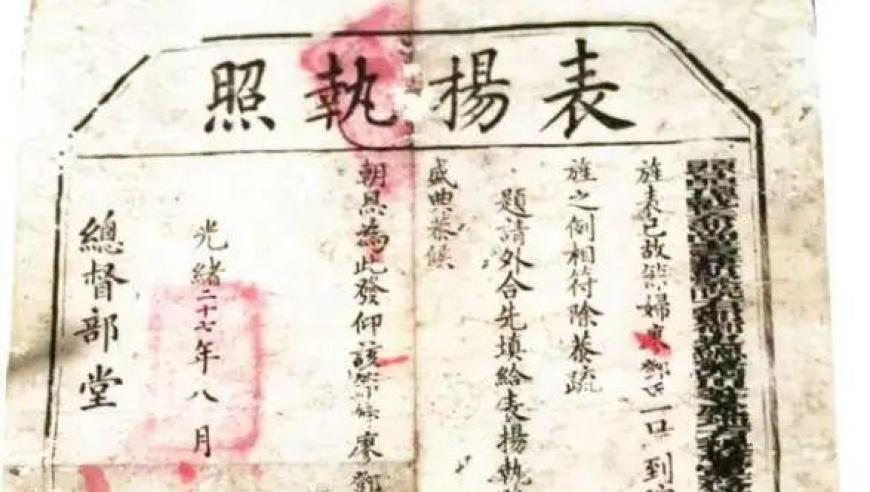 表揚執照
旌表已故婦廖鄧氏一口到
旌之例相符除恭疏
題請外合先填給表揚執
盛典恭候
朝恩為此發仰該婦廖鄧
光緒二十七年八月
總督部堂